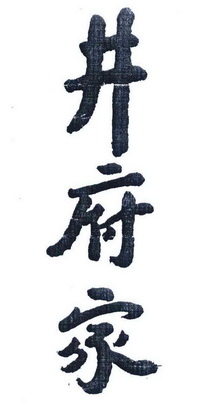 井府家